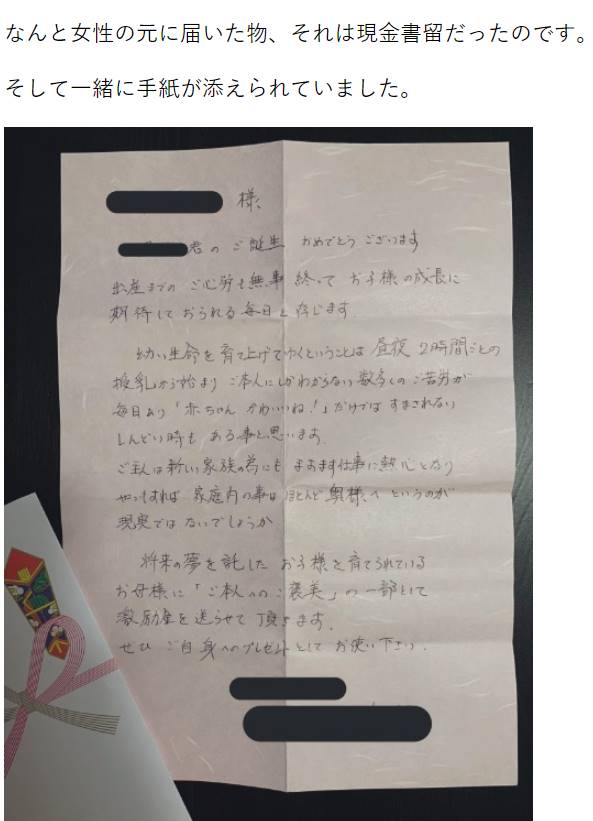 なんと女性の元に届いた物、それは現金書留だったのです。
そして一緒に手紙が添えられていました。
様、
君のご誕生 おめでとうございます
出産までのご心労も無事終って お子様の成長に
期待しておられる毎日と存じます
幼い生命を育て上げてゆくということは昼夜2時間ごとの
授乳から始まり ご本人にしかわからない数多くのご苦労が
毎日あり「赤ちゃん かわいいね!」だけではすまされない
しんどい時も ある事と思います。
ご主人は新しい家族の為にも ますます仕事に熱心となり
やゝもすれば 家庭内の事はほとんど奥様へというのが
現実ではないでしょうか
将来の夢を託した お子様を育てられている
お母様に「ご本人へのご褒美」の一部として
激励金を送らせて頂きます。
ぜひ ご自身へのプレゼントとして お使い下さい。